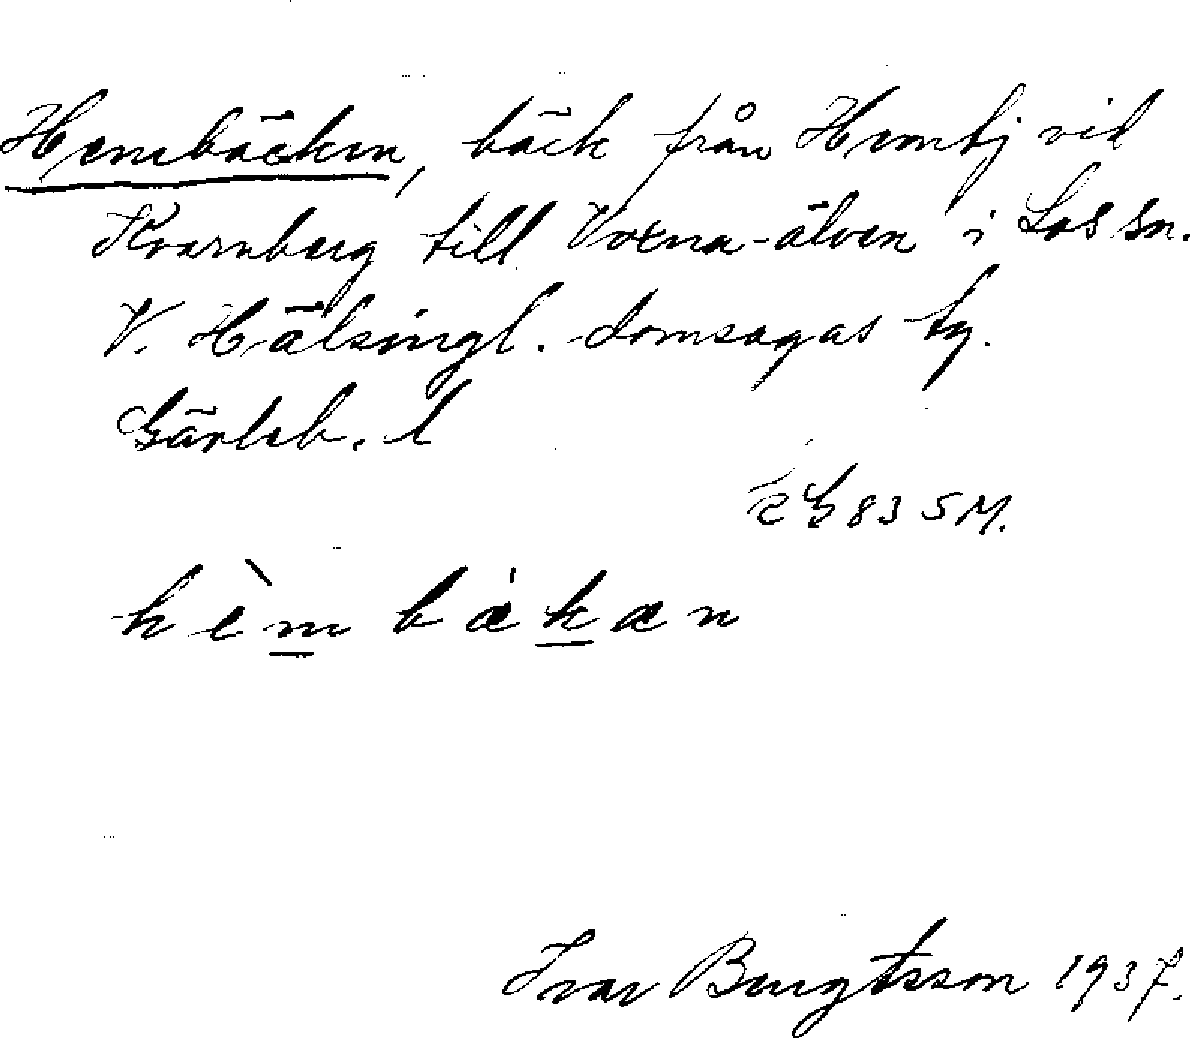 Hembäcken, bäck från Hemtj vid
Kvarnberg till Voxna-älven i Los sn.
V. Hälsingl. domsagas tg.
Gävleb. l
83 S M.
hèm bækæn
Ivar Bengtsson 1937.